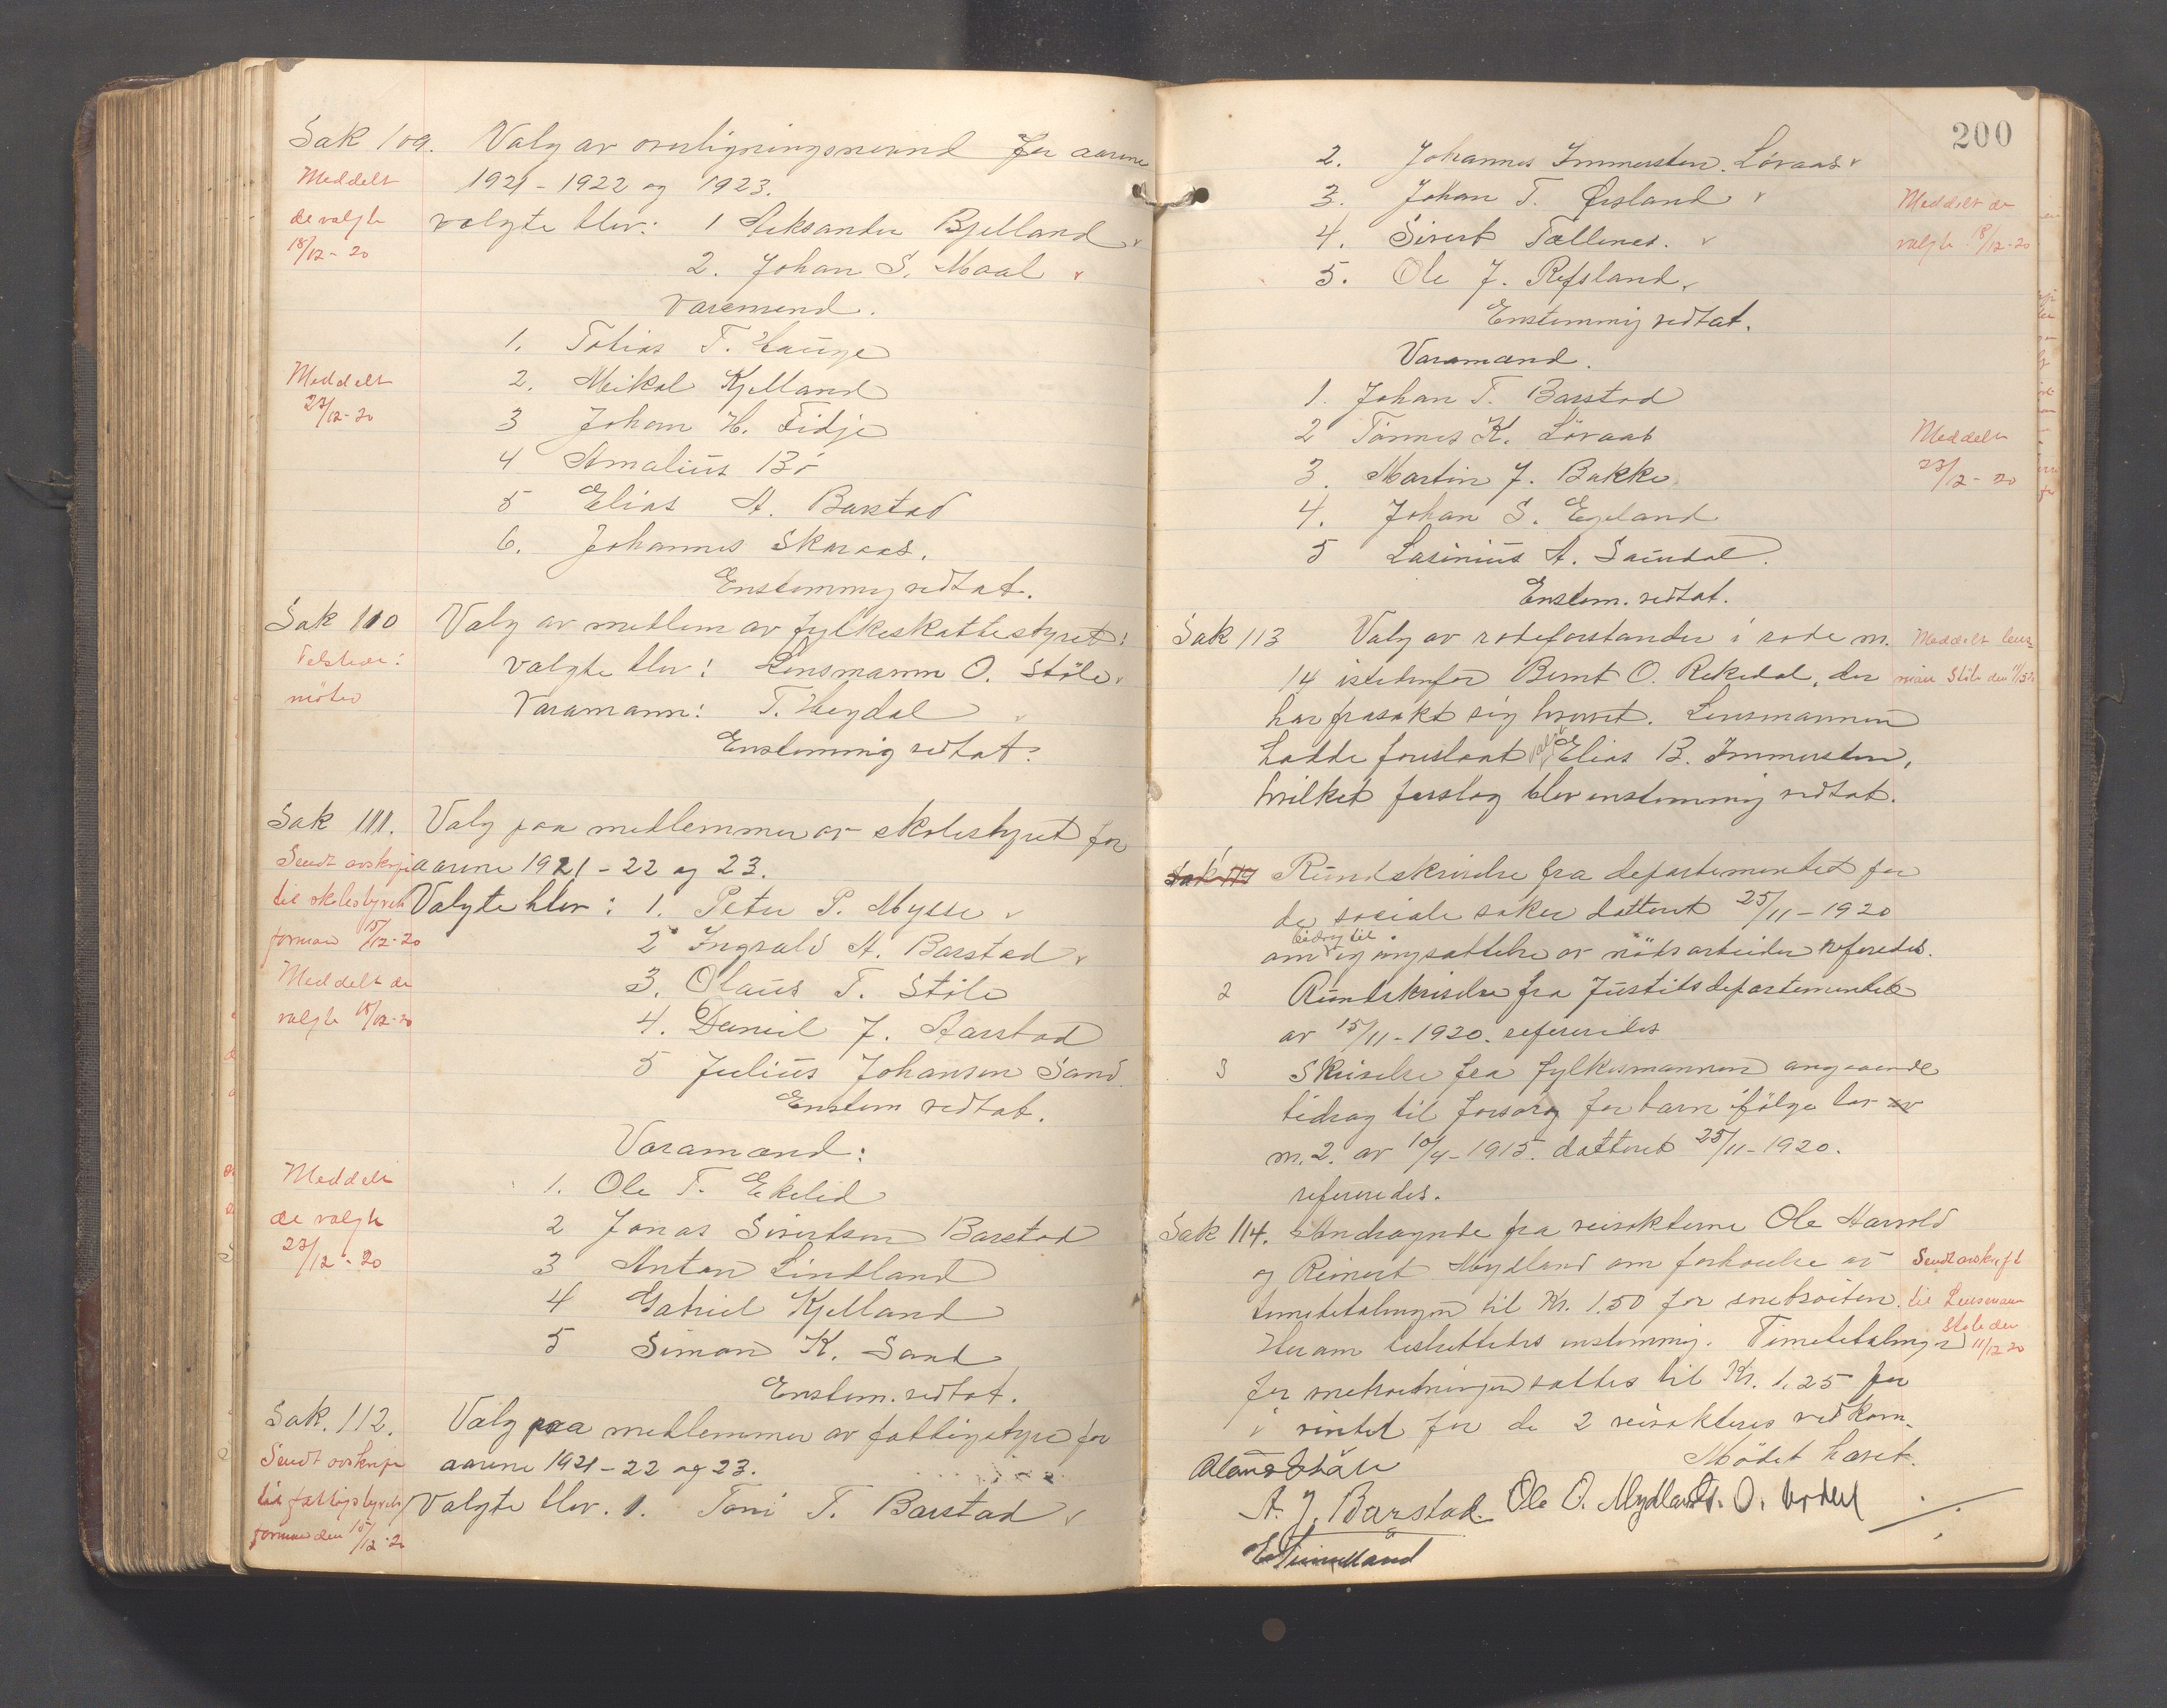 Sak 109. Valg av overligningsnevnd for aarene
Meddelt
de valgte
18/12-20
1921-1922 og 1923.
valgte blev: 1 Aleksander Bjelland
2. Johan S. Maal
Varemend.
1. Tobias T. Hauge
Meddelt
23/12-20
2. Mikal Kjelland
3 Johan H. Eidje
4 Amalius Bö
5 Elias A. Barstad
6. Johannes Skaraas.
Enstemmig vedtat.
Sak 110 Valg av medlem av fylkesskattestyret:
møter
valgte blev: Lensmann O. Stöle
Varamann: T. Hegdal
Enstemmig vedtat.
Sak 111. Valg paa medlemmer av skolestyret for
aarene 1921-22 og 23.
Sendt avskrift
til skolestyrets
formand 15/12-20
Meddelt de
valgte 18/12-20
Valgte blev: 1. Peter P. Mysse
2 Ingvald A. Barstad
3. Olaus T. Stöle
4. Daniel J. Aarstad
5 Julius Johansen Sand
Enstem vedtat.
Varamænd:
Meddelt
de valgte
23/12-20
1. Ole T. Eikelid
2 Jonas Sivertsen Barstad
3 Anton Lindland
4 Gabriel Kjelland
5 Simon K. Sand
Enstem. vedtat.
Sak. 112. Valg paa medlemmer av fattigstyre for
aarene 1921-22 og 23.
Sendt avskrift
til fattigstyrets
formann den 15/12-20
Valgte blev. 1. Toni T. Barstad
200
2. Johannes Immersten. Lövaas
3. Johan T. Ørsland
4. Sivert Tællenes.
5. Ole J. Refsland
Meddelt de
valgte 18/12-20
Enstemmig vedtat.
Varamænd.
1. Johan T. Barstad
2 Tönnes K. Lövaas
3. Martin J. Bakke
4. Johan S. Egeland
5 Lasinius A. Saurdal.
Meddelt
23/12-20
Enstem. vedtat.
Sak 113 Valg av rodeforstander i rode nr.
14 istedenfor Bernt O. Rekedal, der
har frasakt sig hvervet. Lensmannen
hadde foreslaat valgt Elias B. Immersten,
hvilket forslag blev enstemmig vedtat.
Meddelt lens-
man Stöle den
Sak 114 1 Rundskrivelse fra departementet for
de sociale saker datteret 25/11-1920
om bidrag til igangsættelse av nödsarbeider refereredes.
2 Rundskrivelse fra Justitsdepartementet
av 15/11-1920. refereredes
3 Skrivelse fra fylkesmannen angaaende
bidrag til forsorg for barn ifölge lov av
nr. 2. av 10/4-1915. datteret 25/11-1920.
refereredes.
Sak 114. Andragende fra veivokterne Ole Harvold
og Reinert Mydland om forhöielse av
timebetalingen til Kr. 1.50 for snebröiten.
Herom besluttedes enstemmig. Timebetalingen
for snebröitningen sattes til Kr. 1.25 for
i vinter for de 2 veivokteres vedkom.
Sendt avskrift
til Lensmann
Stöle den
11/12 20
Mödet hævet.
Olaus Stöle
A. J. Barstad. Ole O. Mydland.